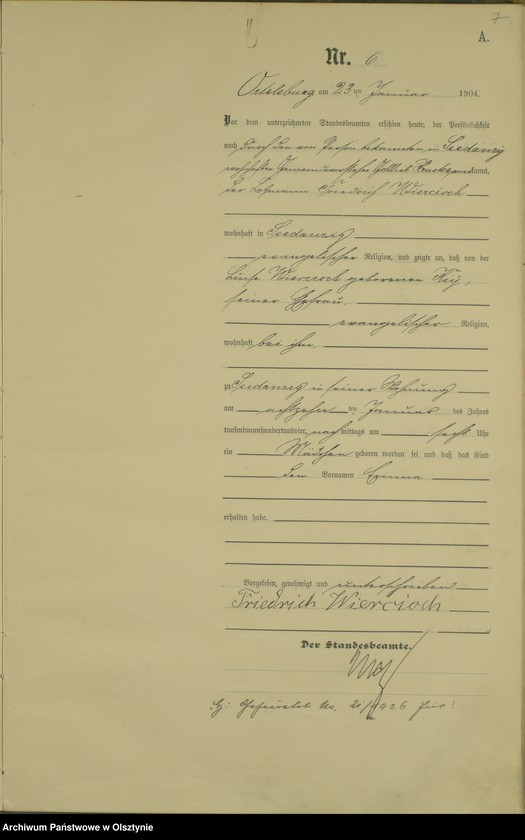 7
A.
Nr. 6
Ortelsburg am 23ten Januar 1904.
Vor dem unterzeichneten Standesbeamten erschien heute, der Persönlichkeit
nach durch den von Person bekannten, in Seedanzig
wohnhaften Gemeindevorsteher kannt,
der Losmann Friedrich Wiercioch
wohnhaft in Seedanzig
evangelischer Religion, und zeigte an, daß von der
Luise Wiercioch geborenen
seiner Ehefrau,
evangelischer Religion,
wohnhaft bei ihm,
zu Seedanzig in seiner Wohnung
am achtzehnten Januar des Jahres
tausendneunhundertundvier, nachmittags um sechs Uhr
ein Mädchen geboren worden sei und daß das Kind
den Vornamen Emma
erhalten habe.
Vorgelesen, genehmigt und unterschrieben
Friedrich Wiercioch
Der Standesbeamte.
Geheiratet Nr. 1926
Archiwum Państwowe w Olsztynie